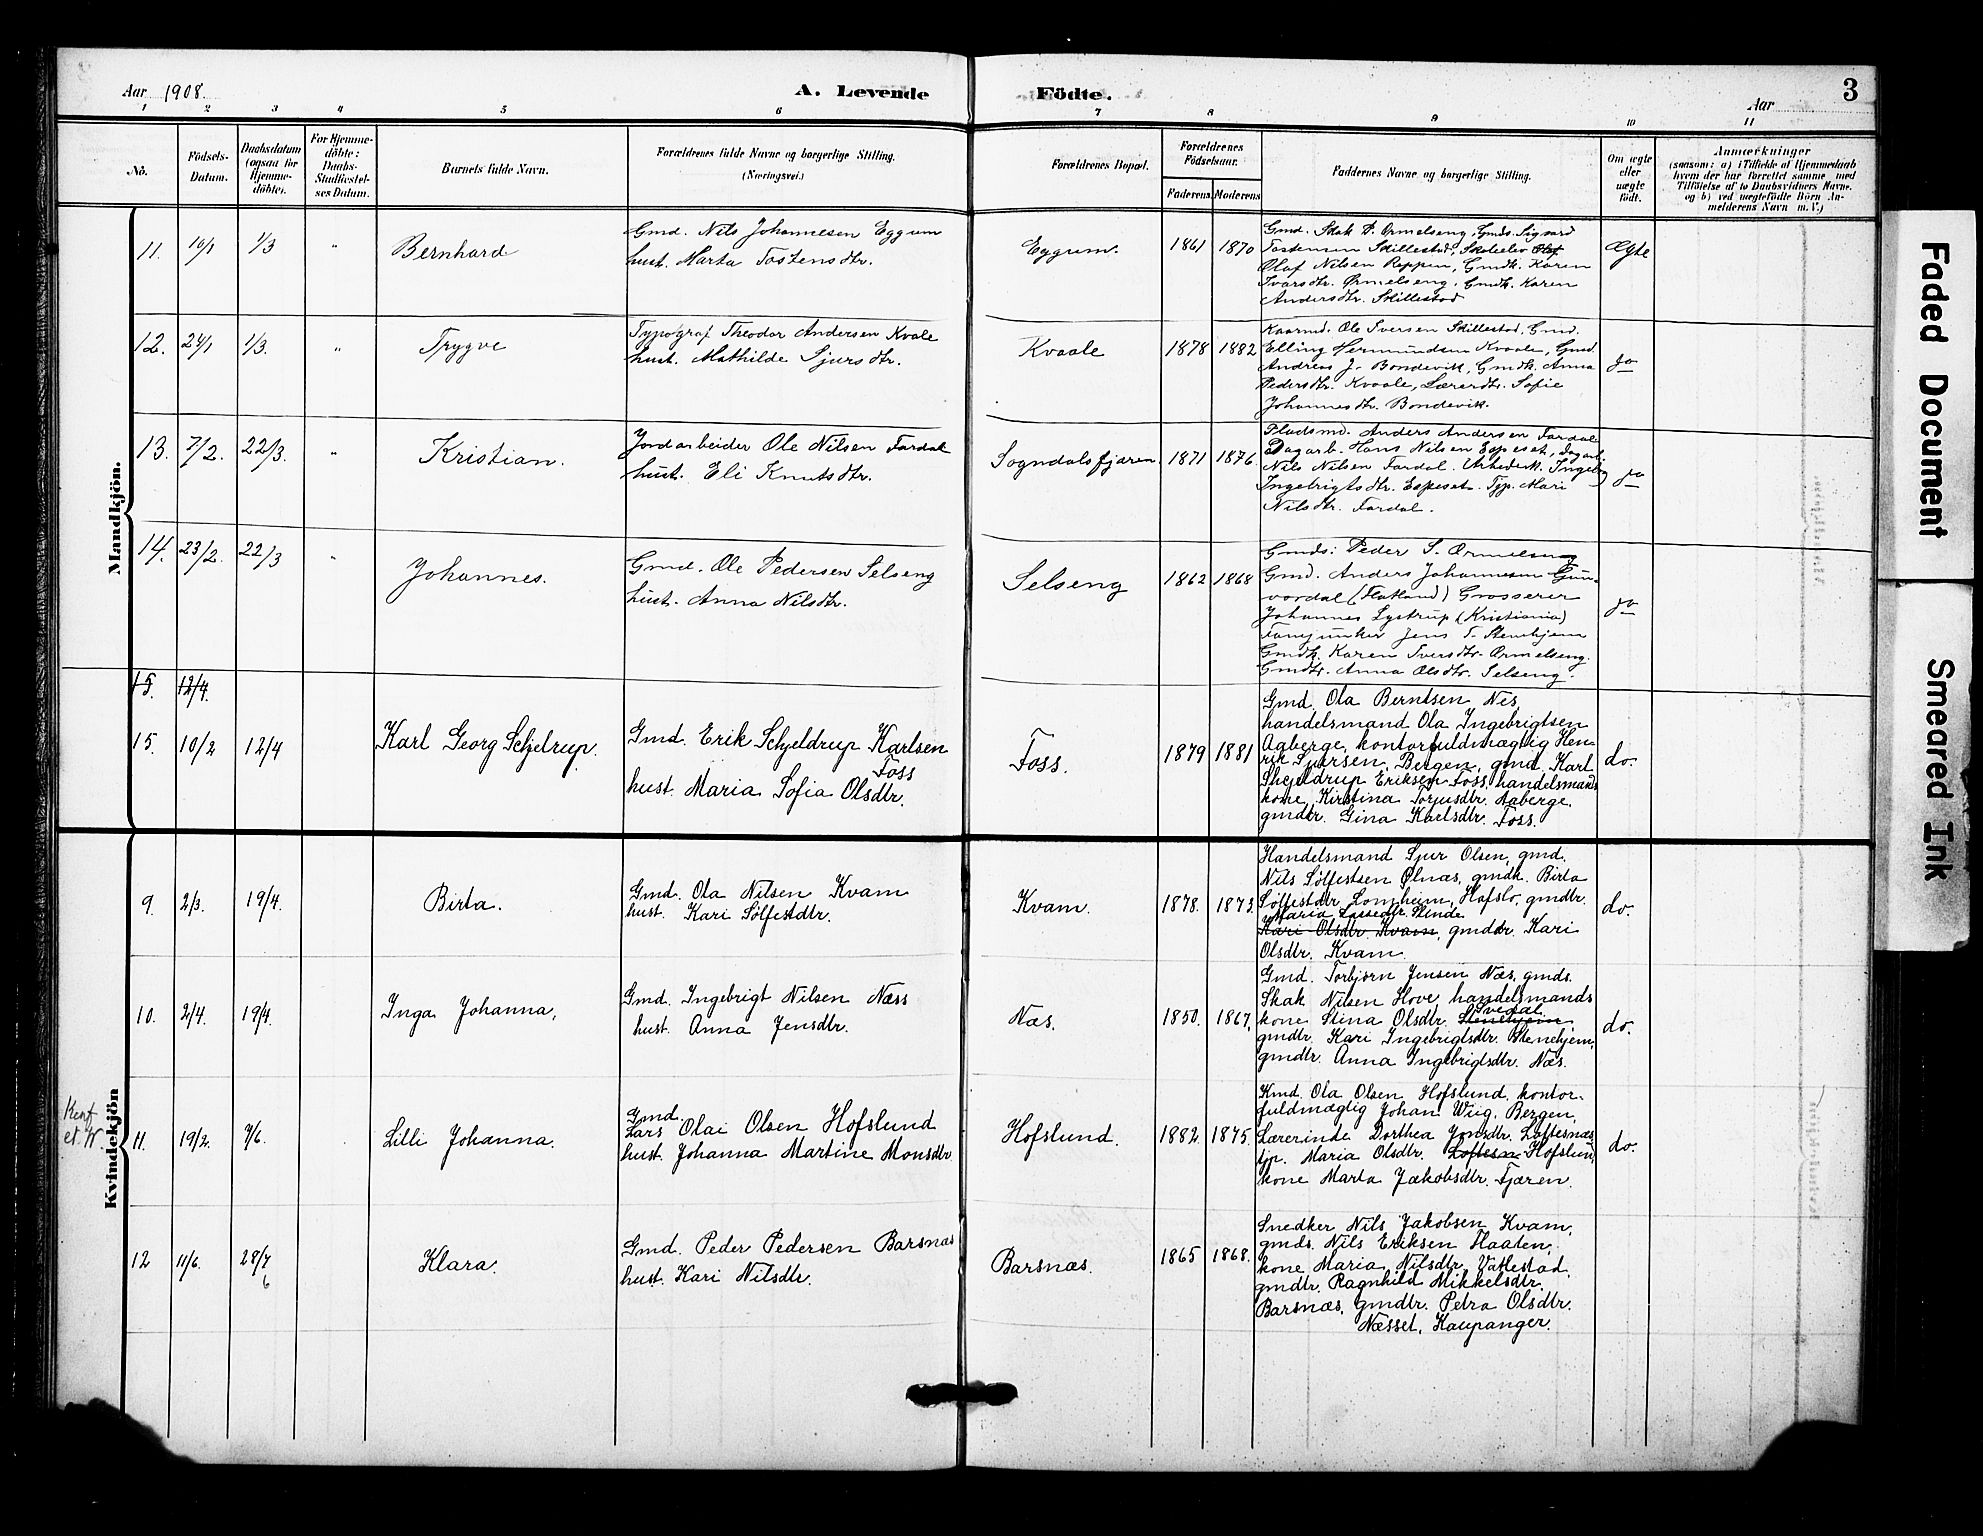 Aar 1908.
A. Levende Födte.
Aar
3
1 2 3 4 5 6 7 8 9 10 11
No.
Födsels-
Datum.
Daabsdatum
(ogsaa for
Hjemme-
döbte).
For Hjemme-
döbte:
Daabs-
Stadfæstel-
ses Datum.
Barnets fulde Navn.
Forældrenes fulde Navne og borgerlige Stilling.
(Næringsvei.)
Forældrenes Bopæl.
Forældrenes
Födselsaar.
Faderens Moderens
Faddernes Navne og borgerlige Stilling.
Om ægte
eller
uægte
födt.
Anmærkninger
(saasom: a) i Tilfælde af Hjemmedaab
hvem der har forrettet samme med
Tilföielse af to Daabsvidners Navne.
og b) ved uægtefödte Börn An-
melderens Navn m. V.)
Mandkjön.
11. 10/1 1/3 " Bernhard
Gmd. Nils Johannesen Eggum
hust. Marta Tostensdtr.
Eggum. 1861 1870
Gmd. Skak P. Ormelseng, Gmds. Sigvard
Tostensen Skillestad, Skoleelev Olaf
Olaf Nilsen Reppen, Gmdk. Karen
Ivarsdtr. Ormelseng, Gmdk. Karen
Andersdtr. Skillestad
Ægte
12. 24/1 1/3. " Trygve
Typograf Theodor Andersen Kvale
hust. Mathilde Sjursdtr.
Kvaale 1878 1882
Kaarmd. Ole Iversen Skillestad, Gmd.
Elling Hermundsen Kvaale, Gmd.
Andreas J. Bondevik, Gmdk. Anna
Pedersdtr. Kvaale, Lærerdtr. Sofie
Johannesdtr. Bondevik.
do
13. 7/2. 22/3. " Kristian.
Jordarbeider Ole Nilsen Fardal
hust. Eli Knutsdtr.
Sogndalsfjæren 1871 1876
Pladsmd. Anders Andersen Fardal
Dagarb. Hans Nilsen Espeset, Dagarb.
Nils Nilsen Fardal. Arbeidsk. Ingeborg
Ingebrigtsdtr. Espeset. Tjp. Mari
Nilsdtr. Fardal.
do
14. 23/2. 22/3 " Johannes.
Gmd. Ole Pedersen Selseng
hust. Anna Nilsdtr.
Selseng 1862 1868
Gmds: Peder S. Ormelseng
Gmd. Anders Johannesen Gun-
vordal (Flatland) Grosserer
Johannes Lystrup (Kristiania)
Fanejunker Jens T. Stenehjem
Gmdk. Karen Iversdtr. Ormelseng
Gmdtr. Anna Olsdtr. Selseng.
do
15. 12/4.
15. 10/2 12/4 Karl Georg Schjelrup.
Gmd. Erik Schjeldrup Karlsen
Foss
hust. Maria Sofia Olsdtr.
Foss. 1879 1881
Gmd. Ola Berntsen Nes,
handelsmand Ola Ingebrigtsen
Aaberge, kontorfuldmægtig Hen-
rik Sjursen, Bergen, gmd. Karl
Skjeldrup Eriksen Foss, handelsmands
kone Kirstina Torjusdtr. Aaberge,
gmdtr. Gina Karlsdtr. Foss.
do.
Kvindekjön
9. 2/3. 19/4. Birta.
Gmd. Ola Nilsen Kvam
hust. Kari Sölfestdtr.
Kvam. 1878. 1873.
Handelsmand Sjur Olsen, gmd.
Nils Sölfestsen Ölnæs, gmdk. Birta
Sölfestdtr. Lomheim, Hafslo, gmdtr.
Maria Lassedtr. Slinde
Kari Olsdtr. Kvam, gmddtr. Kari
Olsdtr. Kvam.
do.
10. 2/4. 19/4. Inga Johanna,
Gmd. Ingebrigt Nilsen Næss
hust. Anna Jensdtr.
Næs. 1850. 1867.
Gmd. Torbjörn Jensen Næs, gmds.
Skak Nilsen Hove, handelsmands
Svedal
kone Stina Olsdtr. Stenehjem
gmdtr. Kari Ingebrigtsdtr. Stenehjem,
gmdtr. Anna Ingebrigtsdtr. Næs.
do.
11. 19/2. 7/6. Lilli Johanna.
Gmd.
Lars Olai Olsen Hofslund
hust. Johanna Martine Monsdtr
Hofslund. 1882. 1875.
Kmd. Ola Olsen Hofslund, kontor-
fuldmægtig Johan Wiig, Bergen,
Lærerinde Dorthea Jonsdtr. Loftesnæs,
tjp. Maria Olsdtr. Loftesn Hofslund,
kone Marta Jakobsdtr. Fjæren.
do.
12 11/6. 28/7
6
Klara.
Gmd. Peder Pedersen Barsnæs
hust. Kari Nilsdtr.
Barsnæs. 1865 1868.
Snedker Nils Jakobsen Kvam,
gmds. Nils Eriksen Haaten,
kone Maria Nilsdtr. Vatlestad,
gmdtr. Ragnhild Mikkelsdtr.
Barsnæs, gmdtr. Petra Olsdtr.
Næsset, Kaupanger.
Faded Document
Smeared Ink